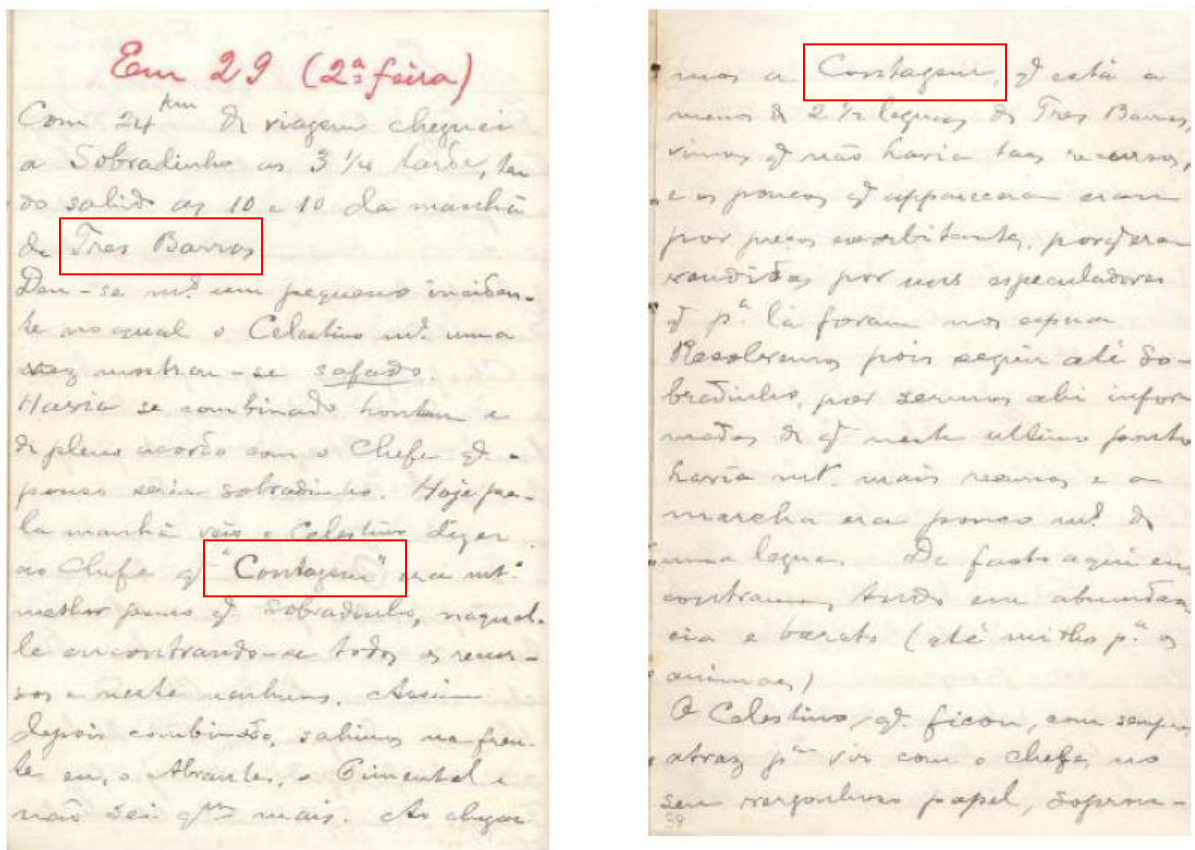 Em 29 (2ª feira)
Com 24 km de viagem cheguei
a Sobradinho as 3 1/4 tarde, ten
do sahido as 10 e 10 da manhã
de Tres Barras
Deu-se mt. um pequeno inciden-
te no qual o Celestino mt. uma
vez mostrou-se safado.
Havia se combinado hontem e
de pleno acordo com o Chefe q
pouso seria Sobradinho. Hoje pe-
la manhã veio o Celestino dizer
ao Chefe q "Contagem" era mtº
melhor pouso q Sobradinho, naquel-
le encontrando-se todos os recur-
sos e neste nenhum. Assim
depois combinado, sahimos na fren-
te eu, o Abrantes, o Pimentel e
não sei qm mais. Ao chegar
mos a Contagem, q está a
menos de 2 1/2 leguas de Tres Barras,
vimos q não havia taes recursos,
e os poucos q appareceram eram
por preços exorbitantes, porq eram
vendidos por uns especuladores
q pª lá foram nos
Resolvemos pois seguir até So-
bradinho, por sermos ahi infor
mados de q neste ultimo ponto
havia mt. mais recursos e a
marcha era pouco mt. de
uma legua. De facto aqui en
contramos tudo em abundan
cia e barato (até milho pª os
animaes)
O Celestino, q. ficou, com sempre
atraz pª vir com o chefe, no
seu vergonhoso papel, soprou-
38